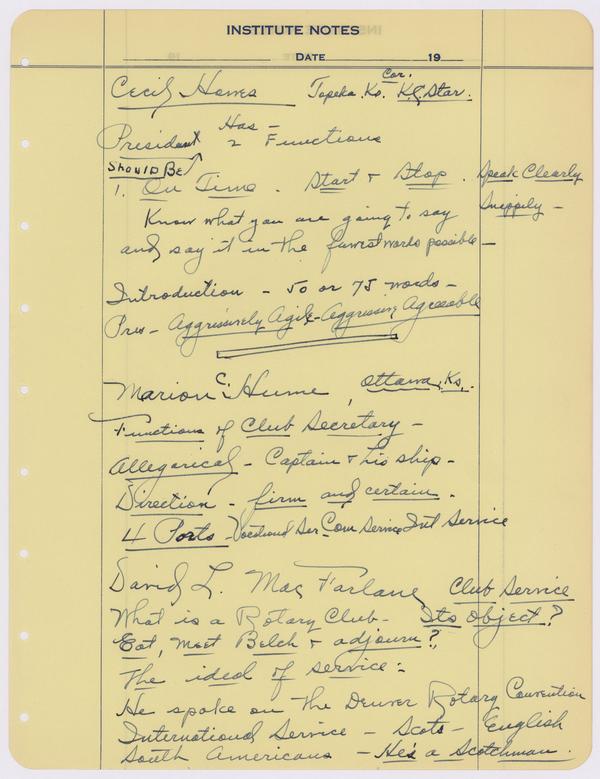 INSTITUTE NOTES
DATE 19
Cecil Howes Topeka, Ks. Cor. KC Star.
President Has - 2 Functions
SHOULD BE
1. On Time. Start & Stop. Speak Clearly
Snippily -
Know what you are going to say
and say it in the fewest words possible -
Introduction - 50 or 75 words -
Pres - Aggressively Agile - Aggressive Agreeable
Marion C. Hume, Ottawa, Ks.
Functions of Club Secretary -
Allegorical - Captain & his ship -
Direction - firm and certain.
4 Ports - Vocational Ser Com Service Int Service
David L. MacFarlane Club Service
What is a Rotary Club - Its Object?
Eat, Meet Belch & adjourn?
The ideal of service:-
He spoke on the Denver Rotary Convention
International Service - Scots - English
South Americans - He's a Scotchman.